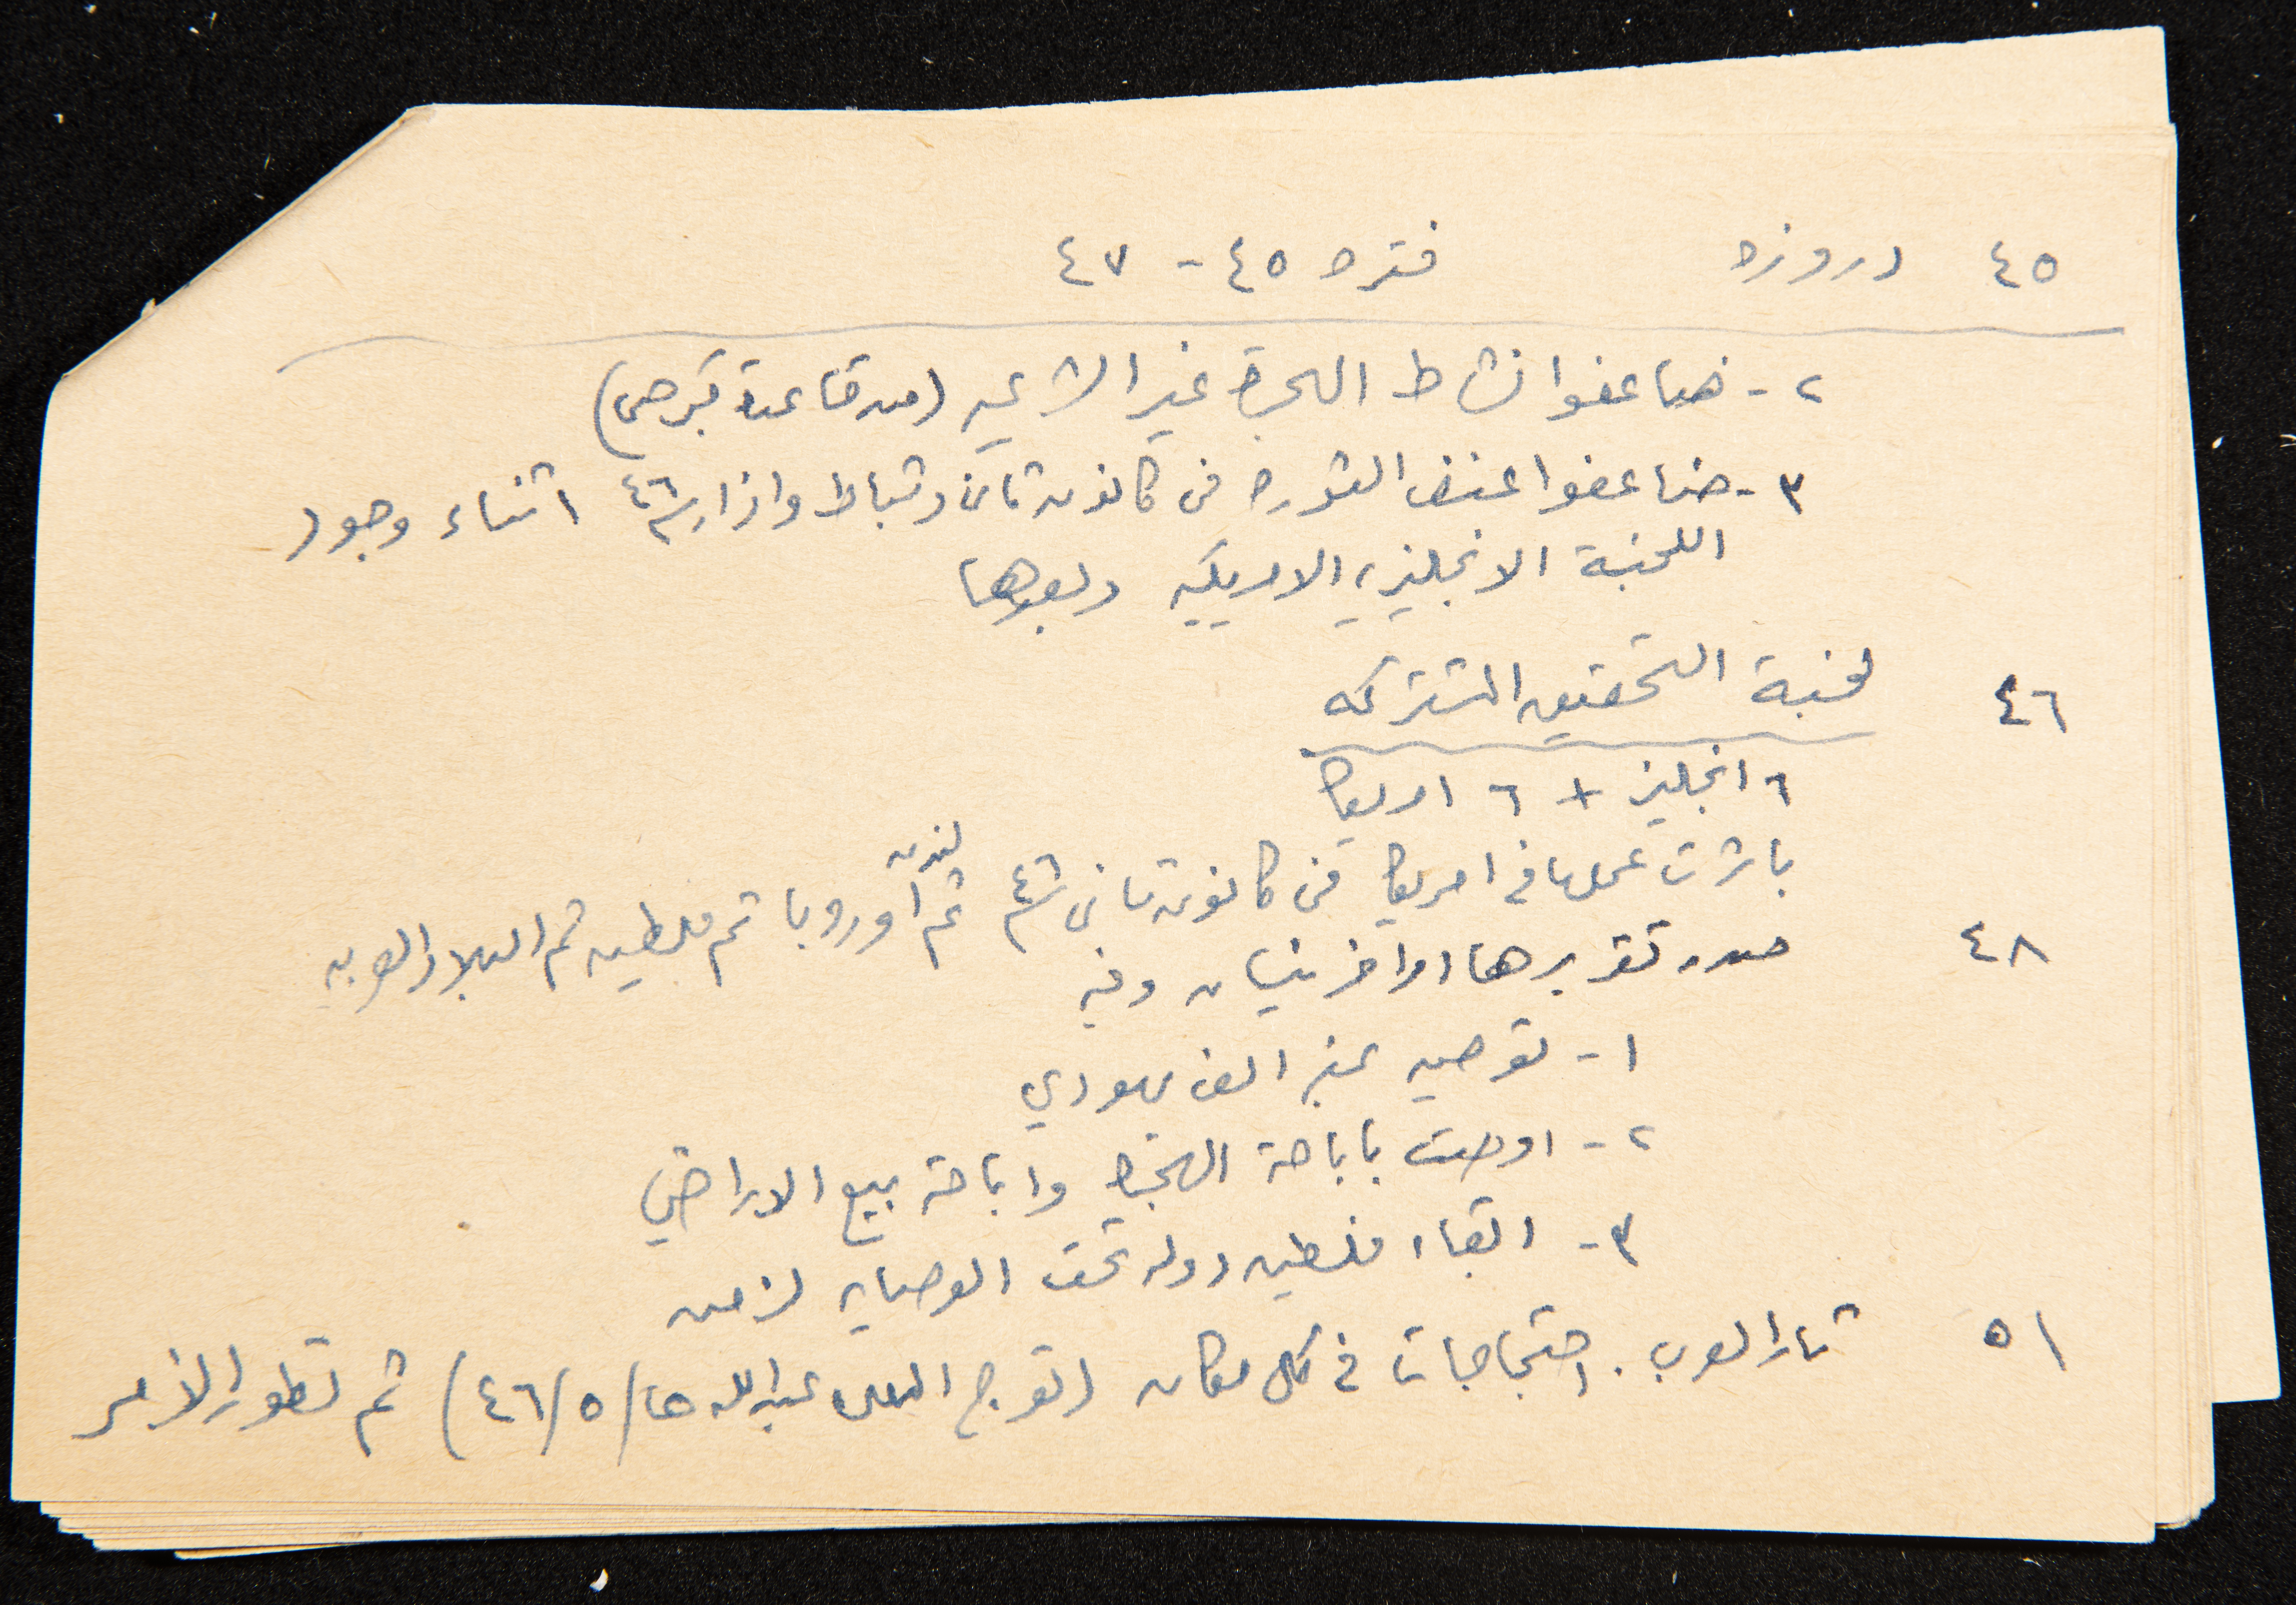 ٤٥ دروزه فتره ٤٥ - ٤٧
٢ - ضاعفوا نشاط الهجرة غير الشرعيه (من قاعدة قبرص)
٣ - ضاعفوا عنف الثوره في كانون ثاني وشباط واذار سنة ٤٦ اثناء وجود
اللجنة الانجليزيه الامريكيه وبعدها
٤٦ لجنة التحقيق المشتركه
٦ انجليز + ٦ امريكا
باشرت عملها في امريكا في كانون ثاني سنة ٤٦ ثم لندن اوروبا ثم فلسطين ثم البلاد العربيه
٤٨ صدر تقريرها اواخر نيسان وفيه
١ - توصيه الف يهودي
٢ - اوصت باباحة الهجرة واباحة بيع الاراضي
٣ - ابقاء فلسطين دوله تحت الوصايه لزمن
٥١ ثار العرب . احتجاجات في كل مكان (توج الملك عبدالله /٥/٤٦) ثم تطور الأمر